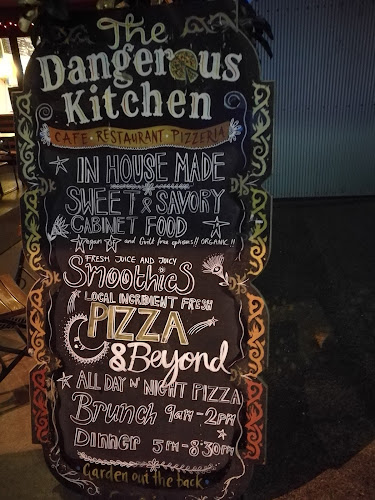 The
Dangerous
Kitchen
CAFE • RESTAURANT • PIZZERIA
IN HOUSE MADE
SWEET & SAVORY
CABINET FOOD
Vegan and Glut free options!! ORGANIC!!
FRESH JUICE AND JUICY
SmoothieS
LOCAL INGRIDIENT FRESH
PIZZA
& Beyond
ALL DAY N' NIGHT PIZZA
Brunch 9AM-2PM
Dinner 5PM-8:30PM
Garden out the back